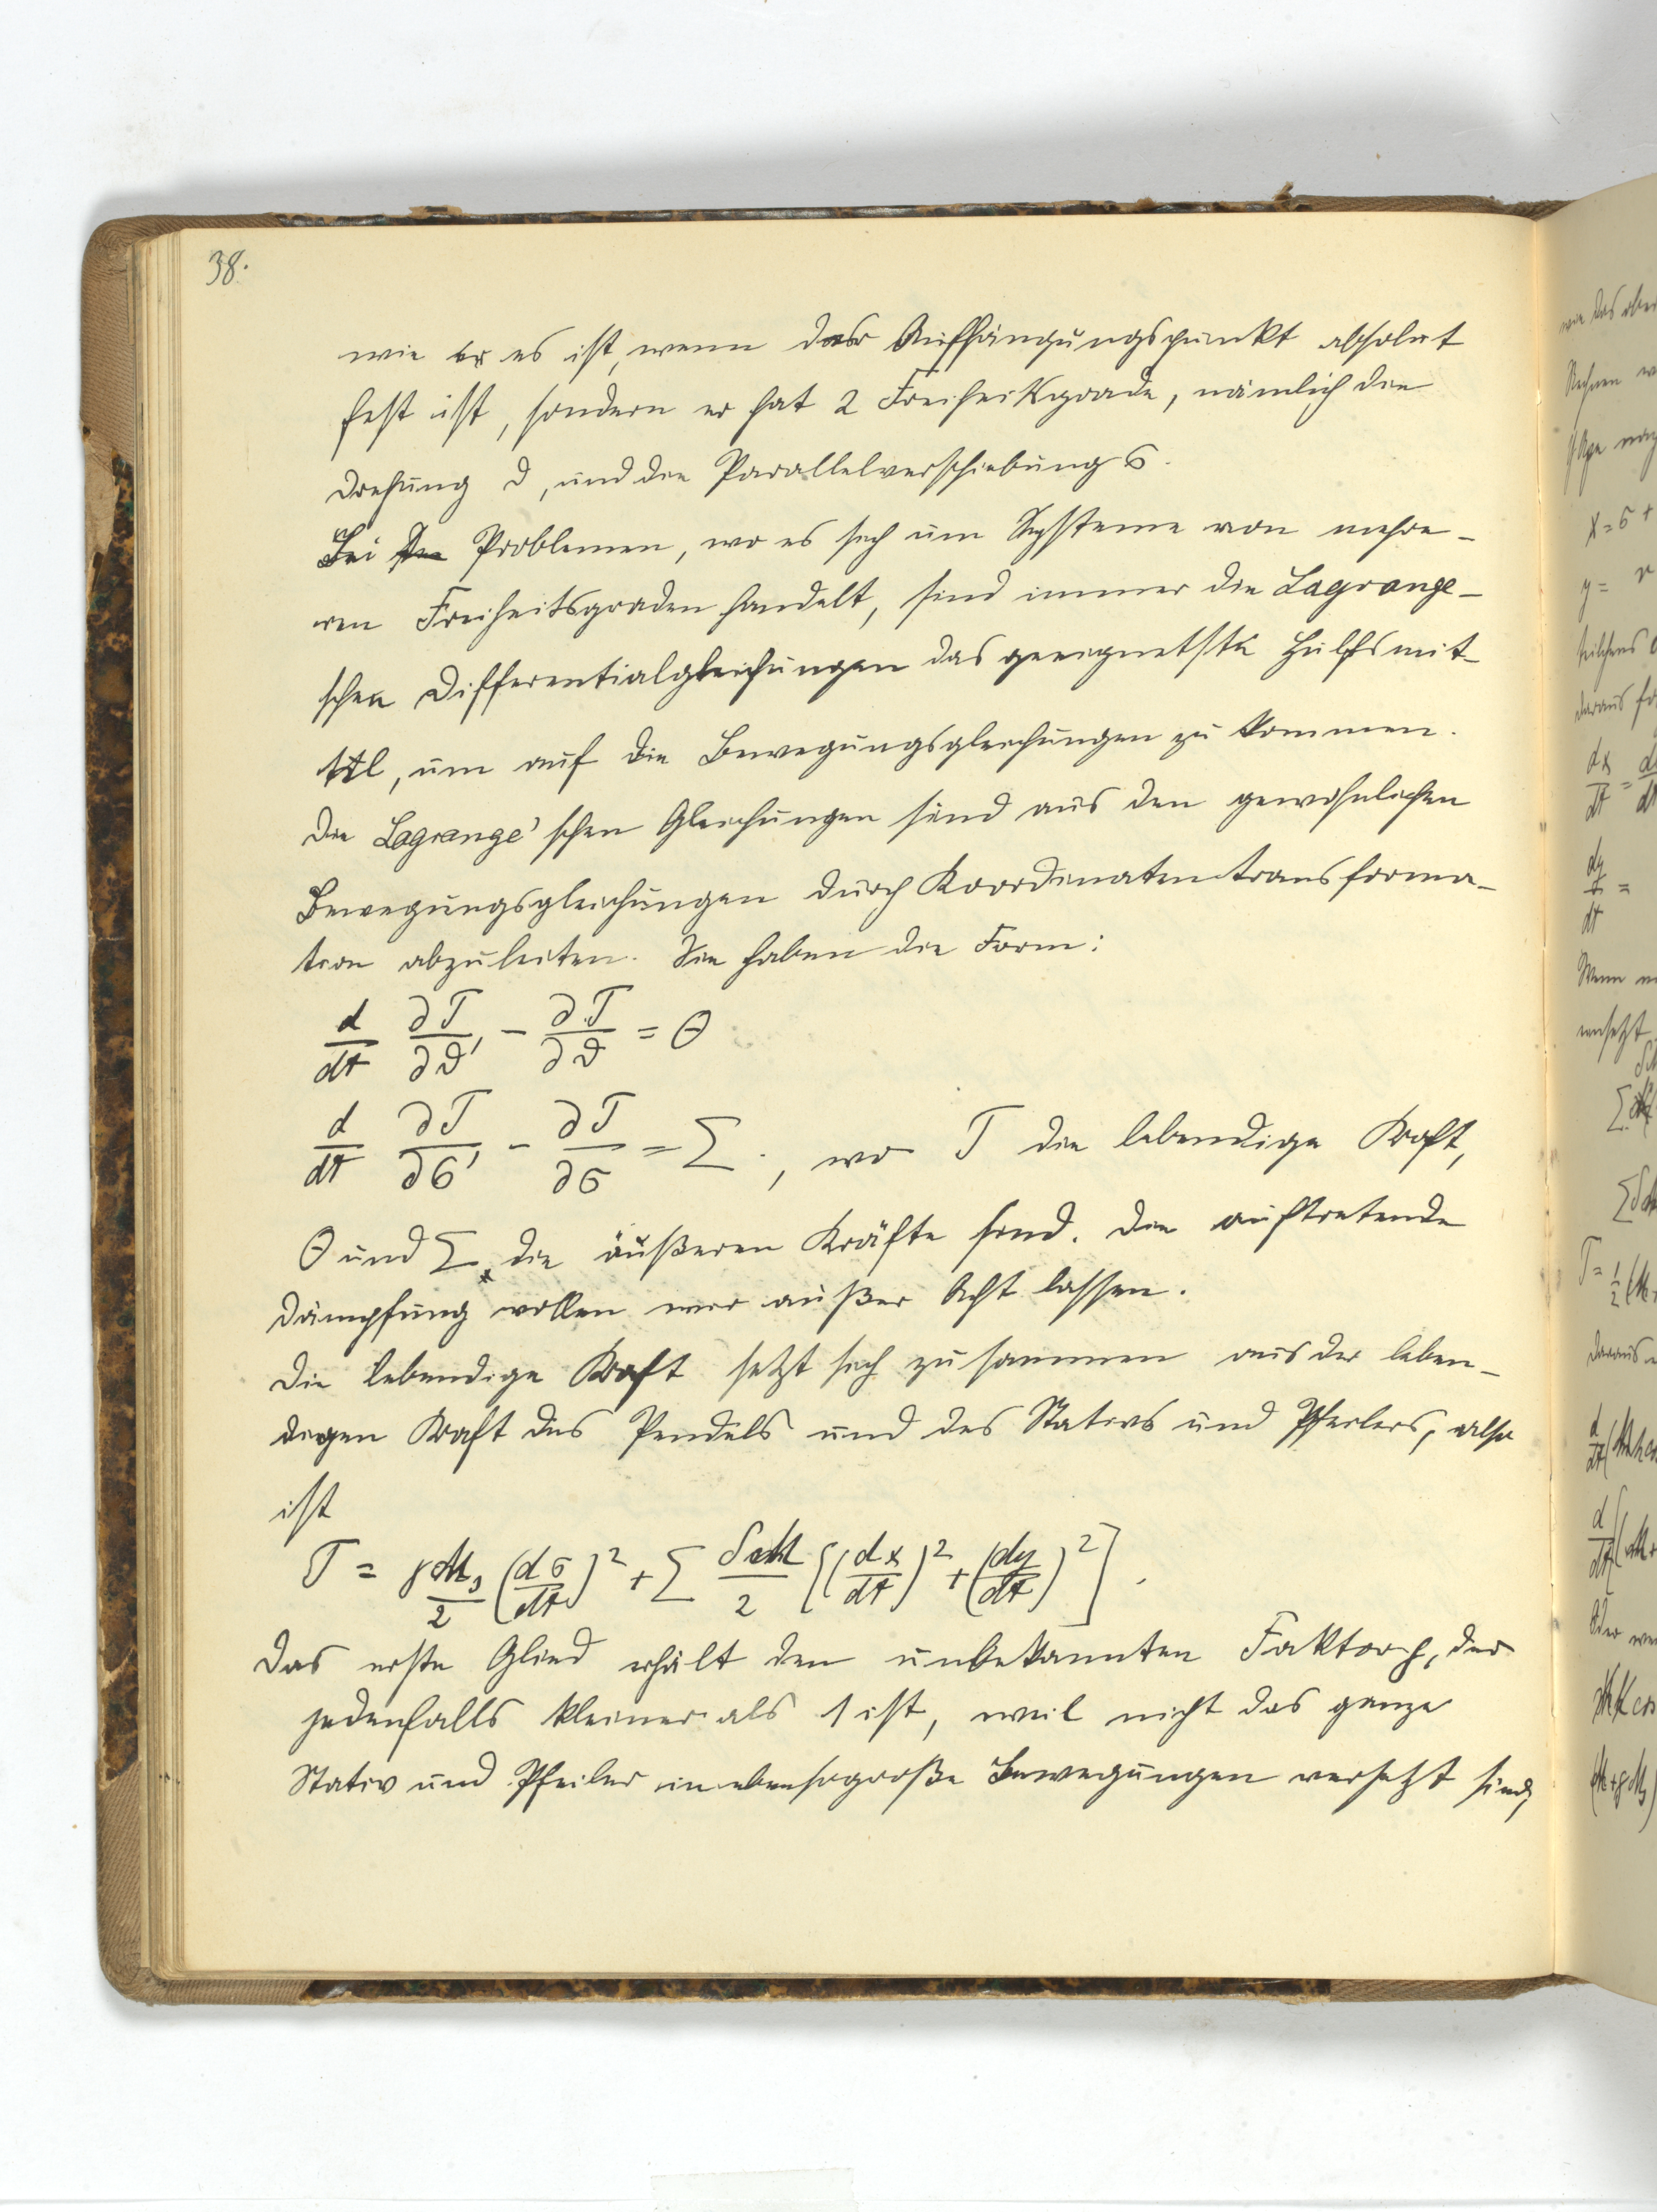 38.
wie er es ist, wenn der Aufhängungspunkt absolut
fest ist, sondern er hat 2 Freiheitsgrade, nämlich die
Drehung ϑ, und die Parallelverschiebung σ.
Bei Problemen, wo es sich um Systeme von mehre-
ren Freiheitsgraden handelt, sind immer die Lagrange-
schen Differentialgleichungen das geeignetste Hülfsmit-
tel, um auf die Bewegungsgleichungen zu kommen.
Die Lagrange'schen Gleichungen sind aus den gewöhnlichen
Bewegungsgleichungen durch Koordinatentransforma-
tion abzuleiten. Sie haben die Form:
d/dt ∂T/∂ϑ' - ∂T/∂ϑ = Θ
d/dt ∂T/∂σ' - ∂T/∂σ = Σ., wo T die lebendige Kraft,
Θ und Σ die äußeren Kräfte sind. Die auftretende
Dämpfung wollen wir außer Acht lassen.
Die lebendige Kraft setzt sich zusammen aus der leben-
digen Kraft des Pendels und des Stativs und Pfeilers, also
ist
T = γM₁/2 (dσ/dt)² + Σ δM/2 [(dx/dt)² + (dy/dt)²].
Das erste Glied erhält den unbekannten Faktor γ, der
jedenfalls kleiner als 1 ist, weil nicht das ganze
Stativ und Pfeiler in ebensogroße Bewegungen versetzt sind,
wie das
Rechnen
x = σ +
y =
daraus
dx/dt =
dy/dt =
Wenn
T = 1/2 (M
daraus
d/dt (
d/dt (M+
Oder